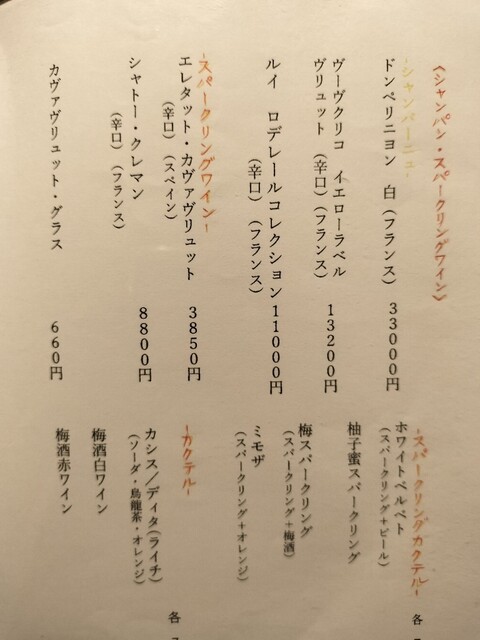 〈シャンパン・スパークリングワイン〉
-シャンパーニュ-
ドンペリニヨン 白 (フランス) 33000円
ヴーヴクリコ イエローラベル
ヴリュット (辛口) (フランス) 13200円
ルイ ロデレールコレクション 11000円
(辛口) (フランス)
-スパークリングワイン-
エレタット・カヴァヴリュット 3850円
(辛口) (スペイン)
シャトー・クレマン 8800円
(辛口) (フランス)
カヴァヴリュット・グラス 660円
-スパークリングカクテル- 各
ホワイトベルベット
(スパークリング+ビール)
柚子蜜スパークリング
梅スパークリング
(スパークリング+梅酒)
ミモザ
(スパークリング+オレンジ)
-カクテル- 各
カシス/ディタ(ライチ)
(ソーダ・烏龍茶・オレンジ)
梅酒白ワイン
梅酒赤ワイン